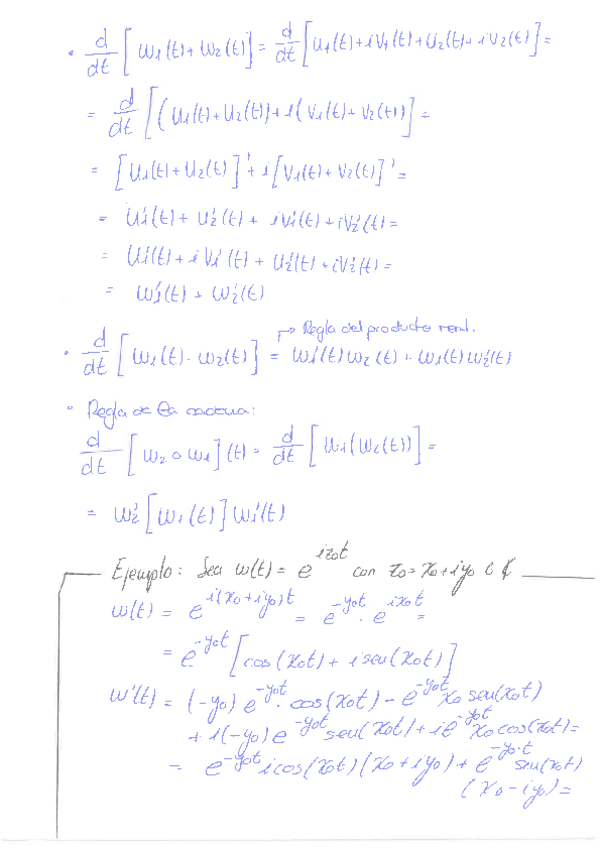 • d/dt [w₁(t)+w₂(t)] = d/dt [u₁(t)+iv₁(t)+u₂(t)+iv₂(t)] =
= d/dt [(u₁(t)+u₂(t))+i(v₁(t)+v₂(t))] =
= [u₁(t)+u₂(t)]'+i[v₁(t)+v₂(t)]' =
= u₁'(t)+u₂'(t)+iv₁'(t)+iv₂'(t) =
= u₁'(t)+iv₁'(t)+u₂'(t)+iv₂'(t) =
= w₁'(t)+w₂'(t)
↱ Regla del producto real.
• d/dt [w₁(t)·w₂(t)] = w₁'(t)w₂(t)+w₁(t)w₂'(t)
• Regla de la cadena:
d/dt [w₂∘w₁](t) = d/dt [w₁(w₂(t))] =
= w₂'[w₁(t)]w₁'(t)
Ejemplo: Sea w(t) = e^{iz₀t} con z₀=x₀+iy₀ ∈ ℂ
w(t) = e^{i(x₀+iy₀)t} = e^{-y₀t}·e^{ix₀t} =
= e^{-y₀t}[cos(x₀t)+isen(x₀t)]
w'(t) = (-y₀)e^{-y₀t}·cos(x₀t)-e^{-y₀t}x₀sen(x₀t)
+i(-y₀)e^{-y₀t}sen(x₀t)+ie^{-y₀t}x₀cos(x₀t)=
= e^{-y₀t}icos(x₀t)(x₀+iy₀)+e^{-y₀t}sen(x₀t)
(x₀-iy₀)=